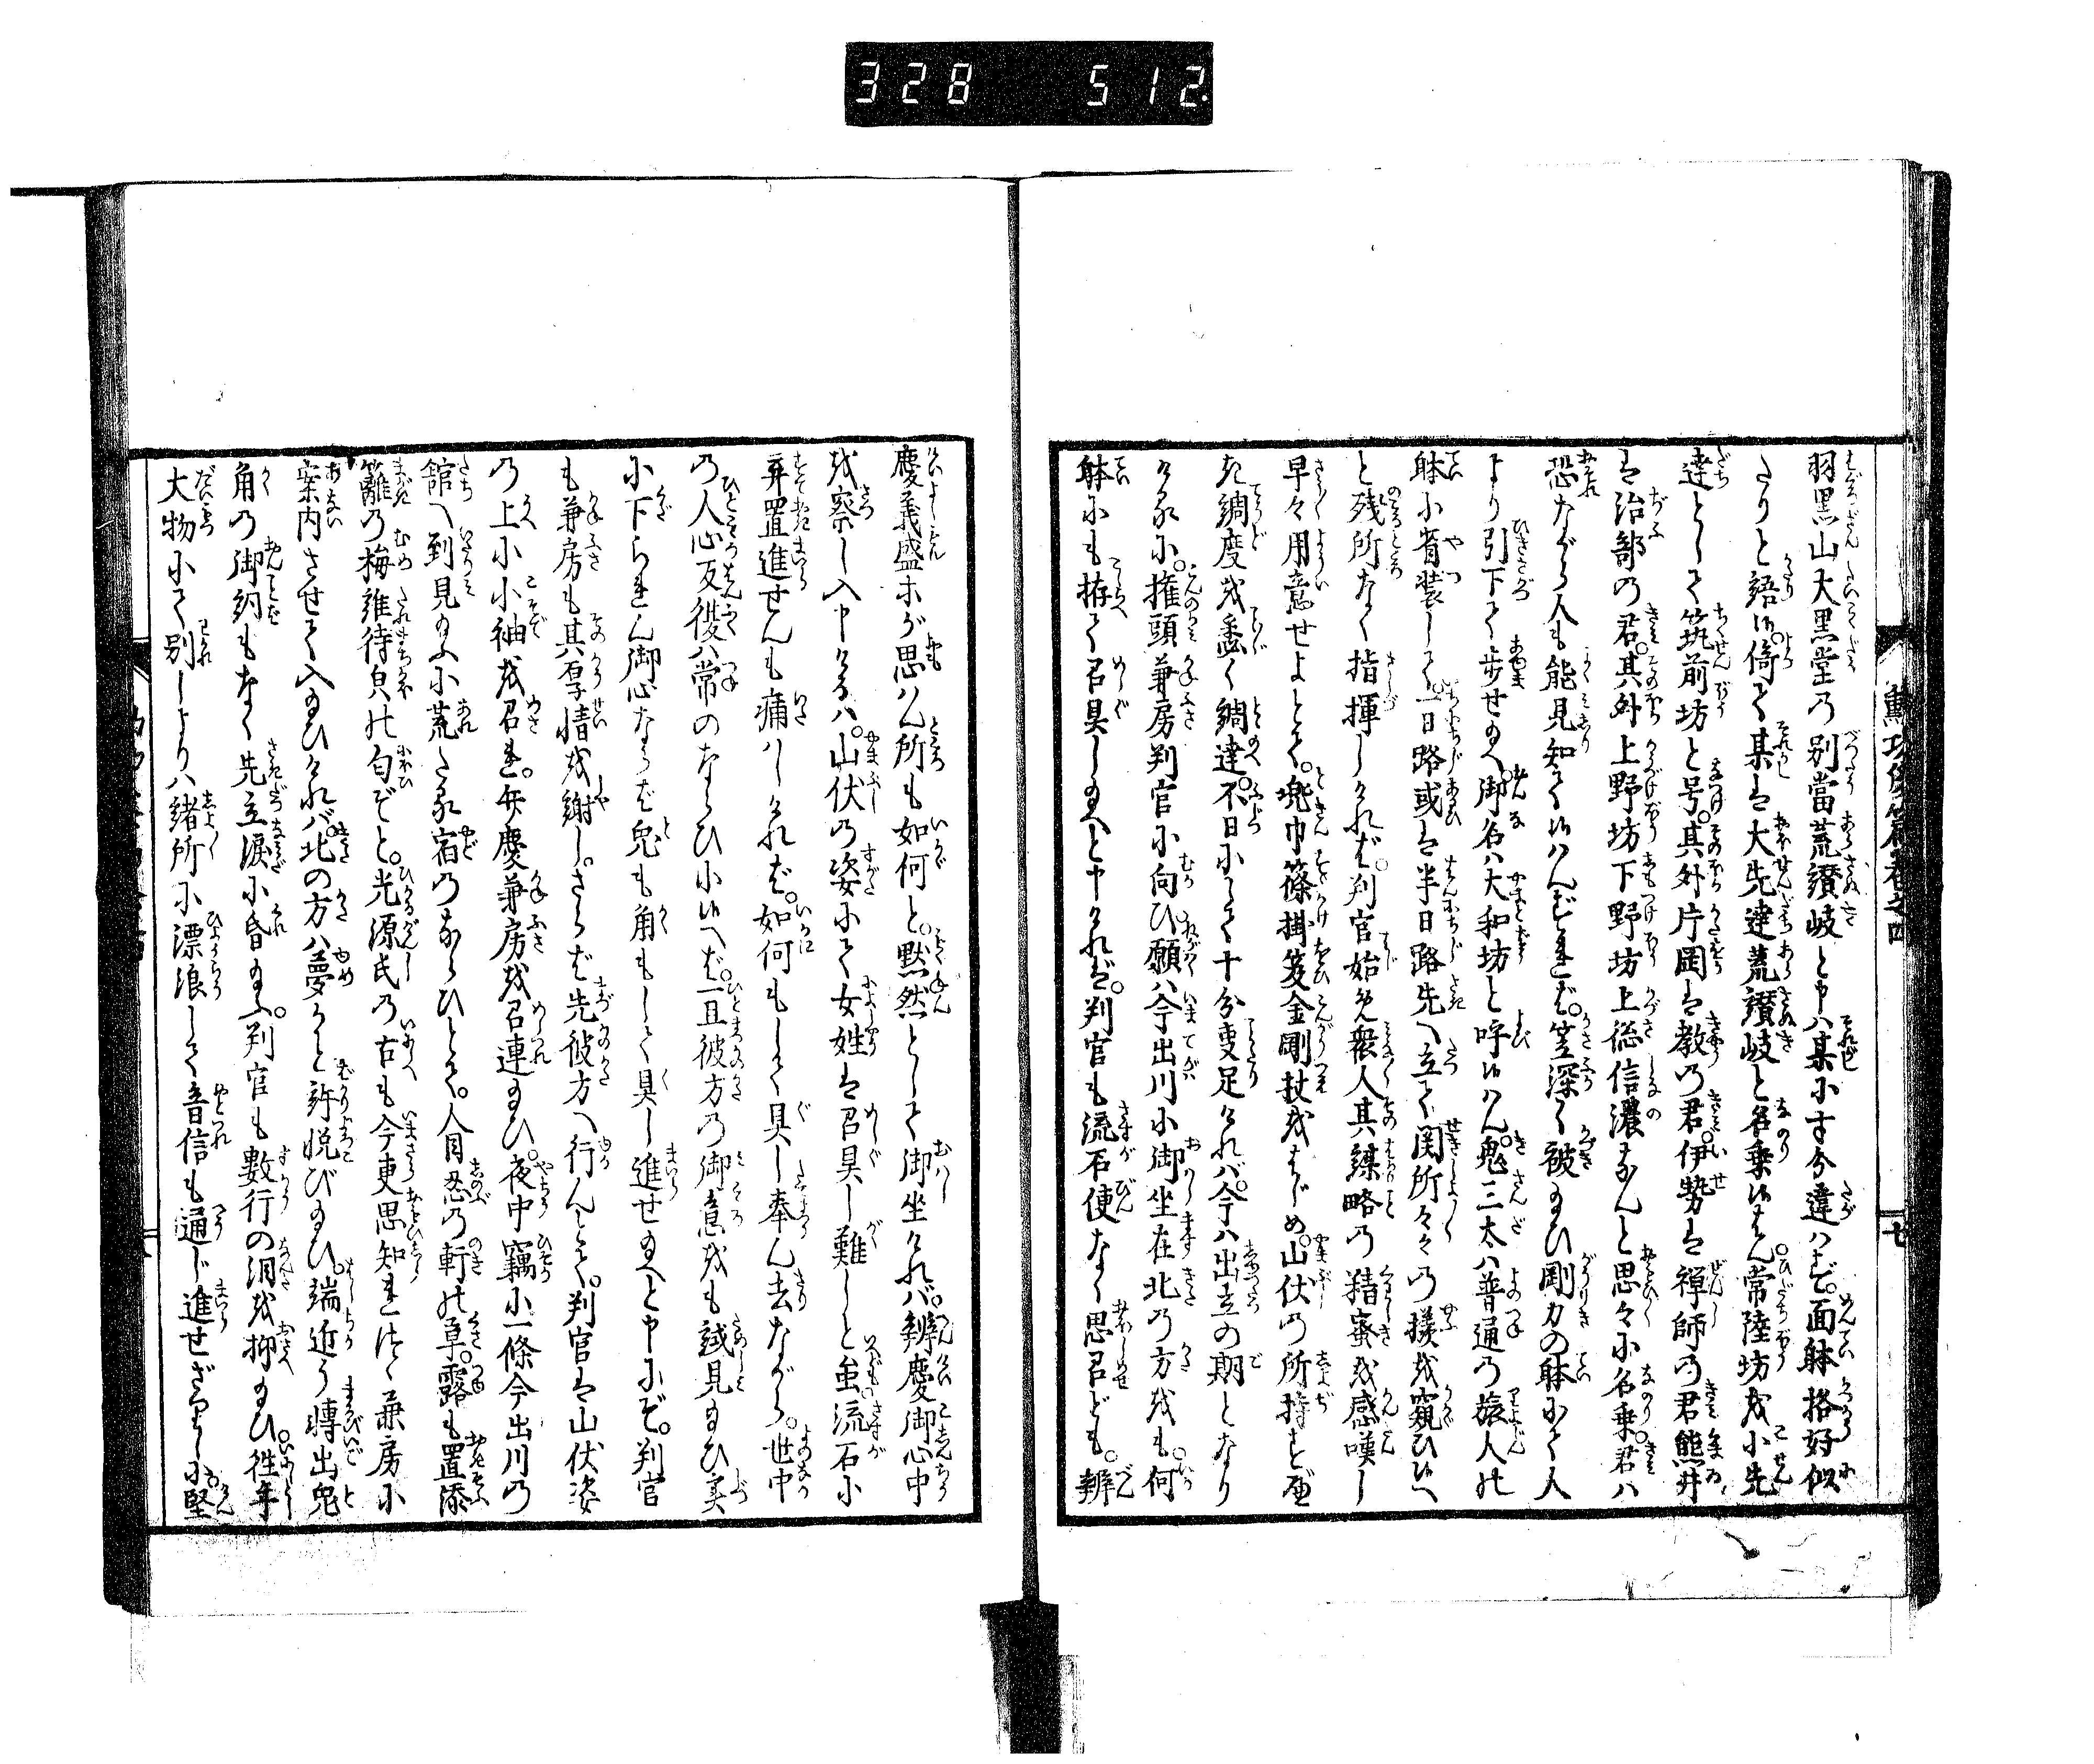 328 512
勲功圖會巻之四
羽黒山大黒堂乃別當荒讃岐と申ハ某に寸分違ハず。面躰格好似
たりと語り。倚て某は大先達荒讃岐と名乗候はん。常陸坊を小先
達として筑前坊と号。其外片岡は教の君。伊勢は禅師の君熊井
は治部の君。其外上野坊下野坊上総信濃なんと思々に名乗。君ハ
恐ながら人も能見知て候ハんずれば。笠深く被給ひ剛力の躰にて人
より引下て歩せ給へ。御名ハ大和坊と呼候ハん。鬼三太ハ普通の旅人の
躰に省装して。一日路或は半日路先へ立て関所々々の様を窺ひ候へ
と残所なく指揮しければ。判官始め衆人其謀略の精蜜を感嘆し
早々用意せよとて。兜巾篠掛笈金剛杖をはじめ。山伏の所持すべ
き調度を悉く調達。不日にして十分事足ければ。今ハ出立の期となり
けるに。権頭兼房判官に向ひ願ハ今出川に御坐在北の方をも。何
躰にも拵て召具し給へと申ければ。判官も流石便なく思召ども。辨
慶義盛等が思ハん所も如何と。黙然として御坐ければ。辨慶御心中
を察し入申けるハ。山伏の姿にて女姓は召具し難しと虽流石に
棄置進せんも痛ハしければ。如何もして具し奉ん去ながら。世中
の人心反復ハ常のならひに候へば。一旦彼方の御意をも試見給ひ実
に下られん御心ならば兎も角もして具し進せ給へと申にぞ。判官
も兼房も其厚情を謝し。さらば先彼方へ行んとて。判官は山伏姿
の上に小袖を召れ。弁慶兼房を召連給ひ。夜中竊に一條今出川の
館へ到見給ふに荒たる宿のならひとて。人目忍の軒の草。露も置添
籬の梅誰待貟の匂ぞと。光源氏の古も今更思知れける。兼房に
案内させて入給ひければ。北の方ハ夢かと許悦び給ひ。端近う轉出兎
角の御詞もなく先立涙に昏給ふ。判官も數行の泪を抑給ひ。徃年
大物にて別しよりハ緒所に漂浪して音信も通じ進せざりしに。堅